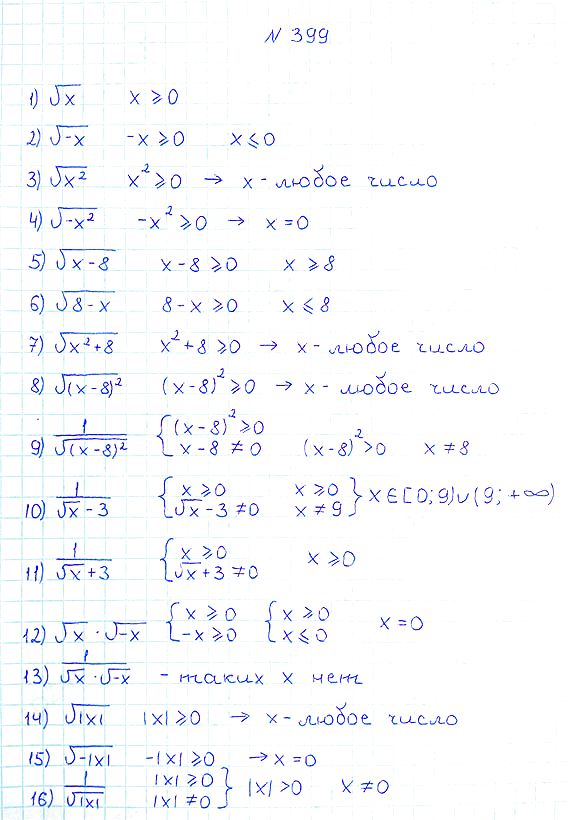 N 399
1) √x   x ⩾ 0
2) √-x   -x ⩾ 0   x ⩽ 0
3) √x²   x² ⩾ 0 → x - любое число
4) √-x²   -x² ⩾ 0 → x = 0
5) √x - 8   x - 8 ⩾ 0   x ⩾ 8
6) √8 - x   8 - x ⩾ 0   x ⩽ 8
7) √x² + 8   x² + 8 ⩾ 0 → x - любое число
8) √(x - 8)²   (x - 8)² ⩾ 0 → x - любое число
9) 1/√(x - 8)²   { (x - 8)² ⩾ 0   x - 8 ≠ 0   (x - 8)² > 0   x ≠ 8
10) 1/√x - 3   { x ⩾ 0   √x - 3 ≠ 0   x ⩾ 0   x ≠ 9 } x ∈ [0; 9) ∪ (9; +∞)
11) 1/√x + 3   { x ⩾ 0   √x + 3 ≠ 0   x ⩾ 0
12) √x · √-x   { x ⩾ 0   -x ⩾ 0   { x ⩾ 0   x ⩽ 0   x = 0
13) 1/√x · √-x   - таких x нет
14) √|x|   |x| ⩾ 0 → x - любое число
15) √-|x|   -|x| ⩾ 0 → x = 0
16) 1/√|x|   |x| ⩾ 0   |x| ≠ 0 }   |x| > 0   x ≠ 0